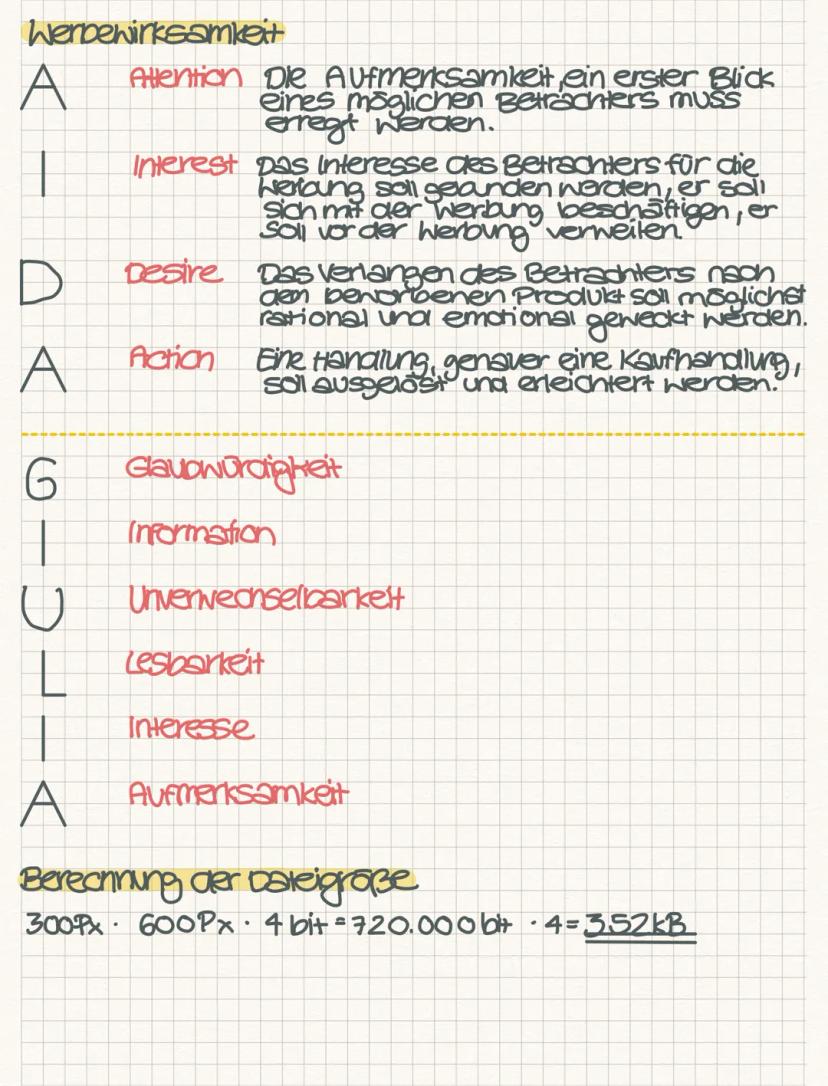 Werbewirksamkeit
A Attention Die Aufmerksamkeit, ein erster Blick
eines möglichen Betrachters muss
erregt werden.
I Interest Das Interesse des Betrachters für die
Werbung soll gebunden werden, er soll
sich mit der Werbung beschäftigen, er
soll vor der Werbung verweilen.
D Desire Das Verlangen des Betrachters nach
dem beworbenen Produkt soll möglichst
rational und emotional geweckt werden.
A Action Eine Handlung, genauer eine Kaufhandlung,
soll ausgelöst und erleichtert werden.
G Glaubwürdigkeit
I Information
U Unverwechselbarkeit
L Lesbarkeit
I Interesse
A Aufmerksamkeit
Berechnung der Dateigröße
300Px · 600Px · 4 bit = 720.000 bit · 4 = 3.52kB